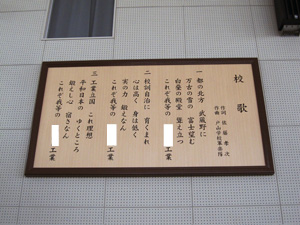 校歌
一 都の北方 武蔵野に
万古の雪の 富士望む
白堊の殿堂 聳え立つ
これぞ我等の 工業
二 校訓自治に 育くまれ
心は高く 身は低く
実の力 鍛えなん
これぞ我等の 工業
三 工業立国 これ理想
平和日本の ゆくところ
鍛えし心 宿さなん
これぞ我等の 工業